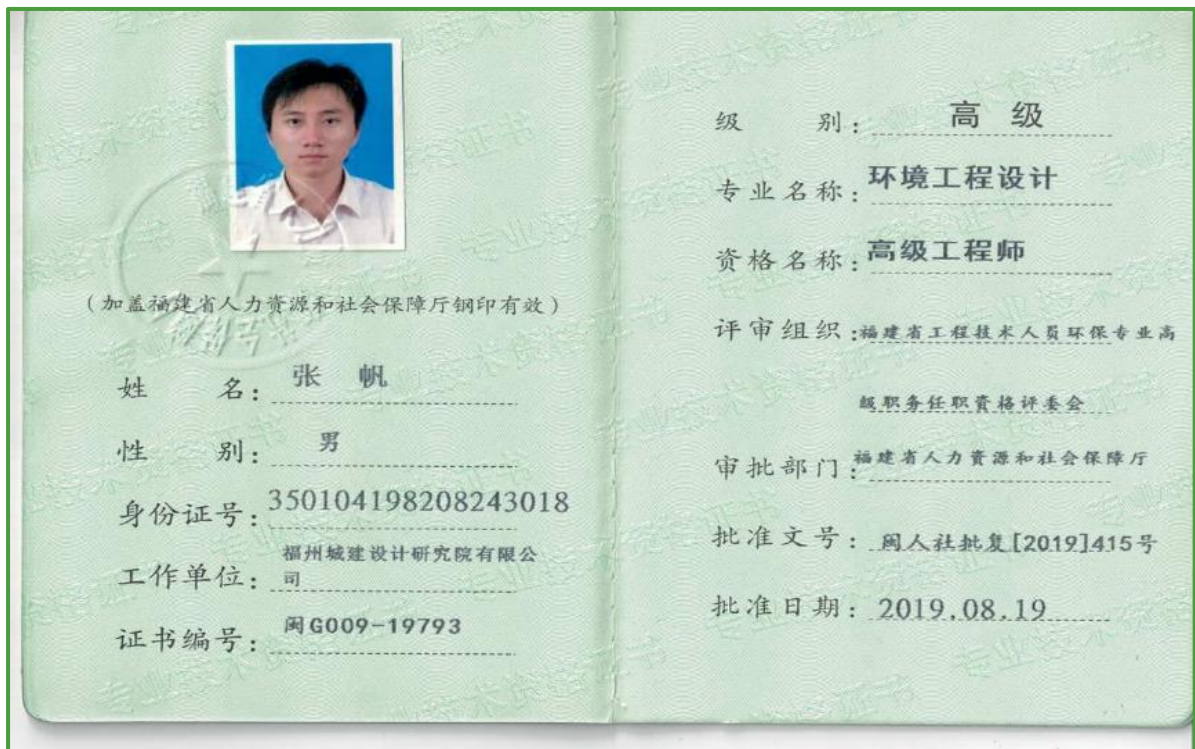 (加盖福建省人力资源和社会保障厅钢印有效)
姓 名: 张 帆
性 别: 男
身份证号: 350104198208243018
工作单位: 福州城建设计研究院有限公
司
证书编号: 闽G009-19793
级 别: 高 级
专业名称: 环境工程设计
资格名称: 高级工程师
评审组织: 福建省工程技术人员环保专业高
级职务任职资格评委会
审批部门: 福建省人力资源和社会保障厅
批准文号: 闽人社批复[2019]415号
批准日期: 2019.08.19